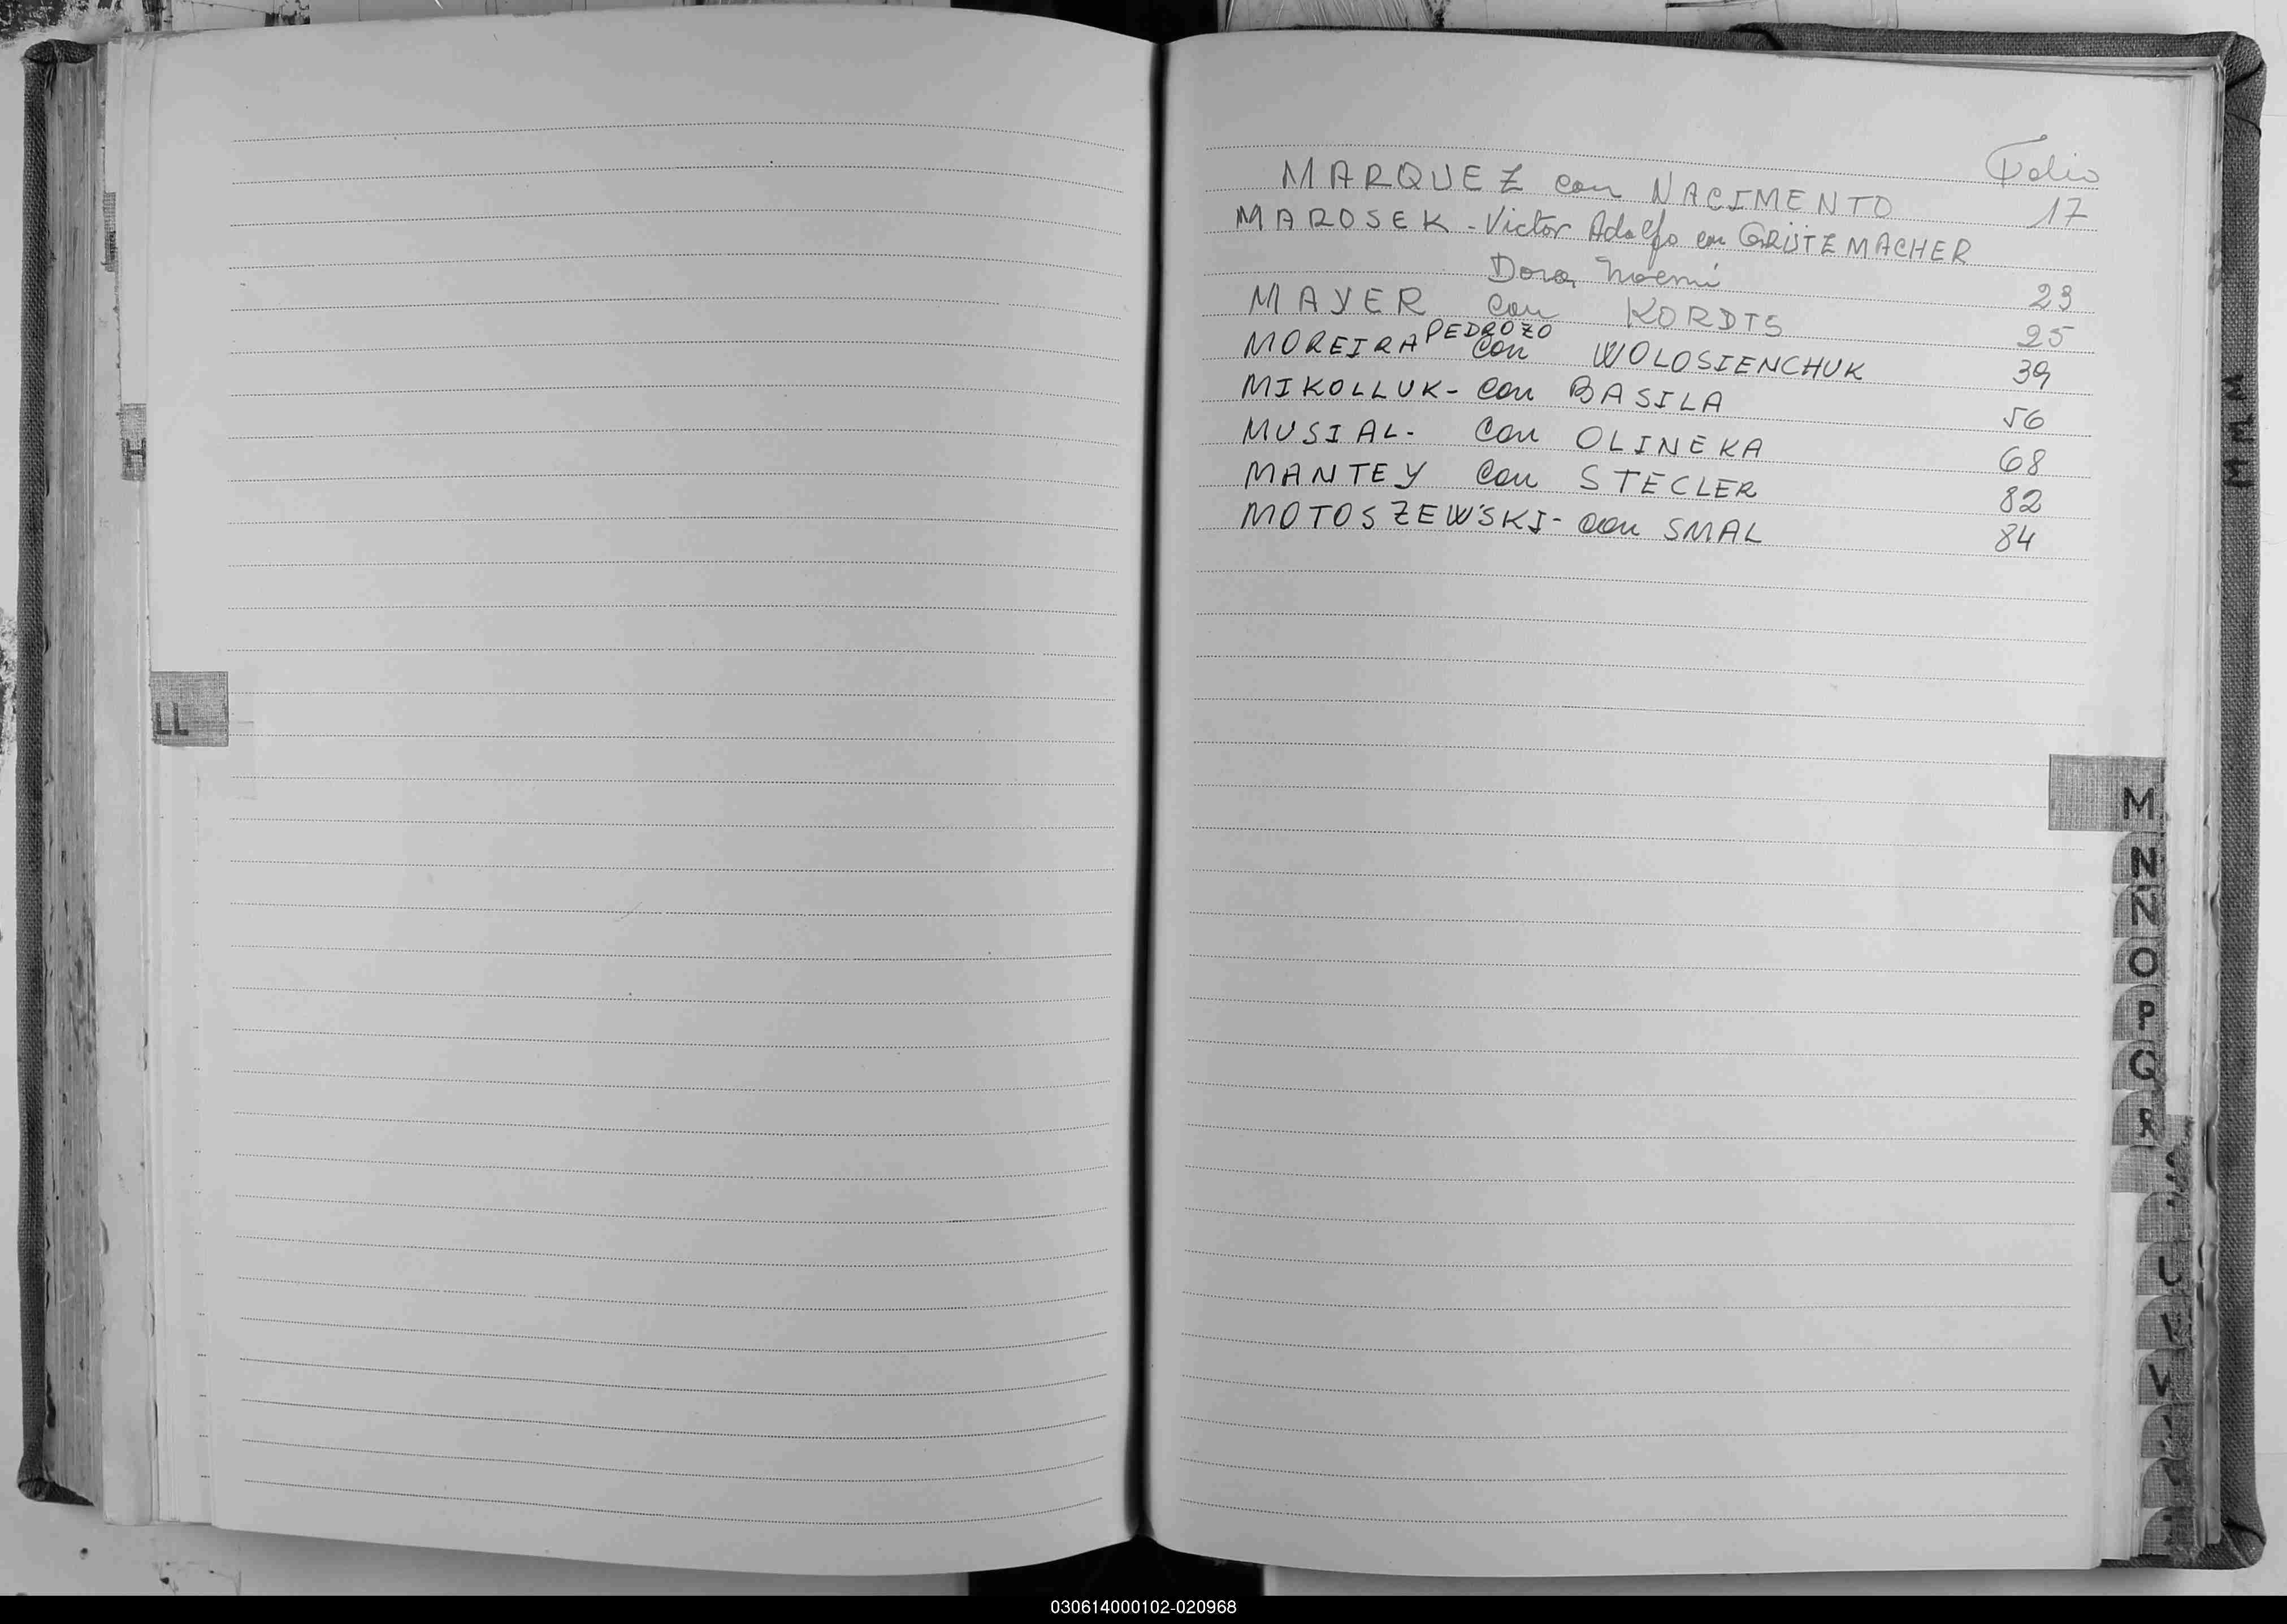 Folio
MARQUEZ con NACIMENTO 17
MAROSEK - Victor Adolfo con GRÜTEMACHER
Dora Noemi 23
MAYER con KORDTS 25
MOREIRA PEDROZO con WOLOSIENCHUK 39
MIKOLLUK - con BASILA 56
MUSIAL - con OLINEKA 68
MANTEY con STECLER 82
MOTOSZEWSKI - con SMAL 84
H
LL
M
N
Ñ
O
P
Q
R
030614000102-020968